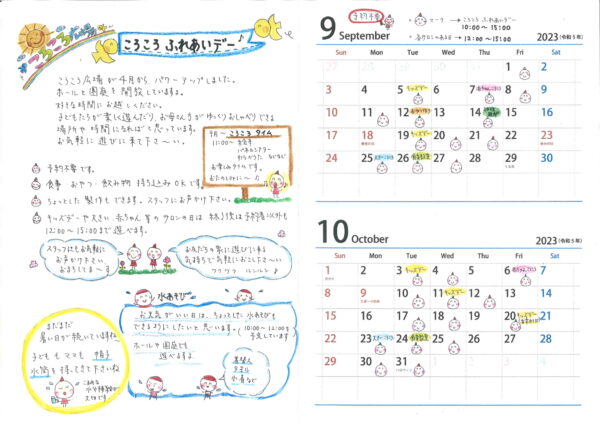 ころころ広場
ころころ ふれあいデー♪
ころころ広場が4月から パワーアップしました。
ホールと園庭も開放していますよ。
好きな時間にお越しください。
子どもたちが楽しく遊んだり、お母さんがゆっくりおしゃべりできる
場所や時間になればと思っています。
お気軽に遊びに来て下さ〜い。
9月〜 ころころタイム
11:00〜
パネルシアター
などなど
お楽しみタイムです。
おたのしみに〜♪
予約不要です。
食事 おやつ・飲み物 持ち込みOKです。
ちょっとした製作もできます。スタッフにお声かけ下さい。
キッズデーや大きい赤ちゃん等のサロンの日は
12:00〜15:00まで遊べます。
スタッフにもお気軽に
お声かけ下さい
お友だちの家に遊びに来る
気持ちで気軽においで下さ〜い
ワクワク ルンルン♪
水あそび
お天気がいい日は、ちょっとした水あそびも
できるようにしたいと思います。
10:00〜12:00を
予定しています
ホールや園庭でも
遊べますよ
着替え
タオル
水着など
まだまだ
暑い日が続いていますね
子どももママも 帽子
水筒を持ってきて下さいね
こまめな
水分補給が
大切です
予約不要
マーク → ころころ ふれあいデー
10:00〜15:00
各サロンのある日 → 12:00〜15:00
9 September 2023 (令和5年)
SUN MON TUE WED THU FRI SAT
1 2
3 4 5 キッズデー 6 7 8 9
10 11 12 13 14 15 16
17 18 19 キッズデー 20 21 22 23
24 25 26 27 28 29 30
10 October 2023 (令和5年)
SUN MON TUE WED THU FRI SAT
1 2 3 キッズデー 4 5 6 7
8 9 10 11 12 13 14
15 16 17 18 19 20 キッズデー 21
22 23 24 25 26 27 28
29 30 31